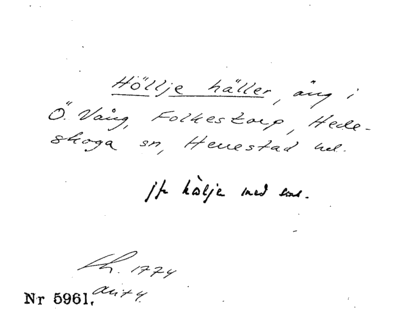 Höllje häller, äng i
Ö. Vång, Folkestorp, Hede-
skoga sn, Herrestad hd.
jfr hölje med
Lh. 1774
Nr 5961.